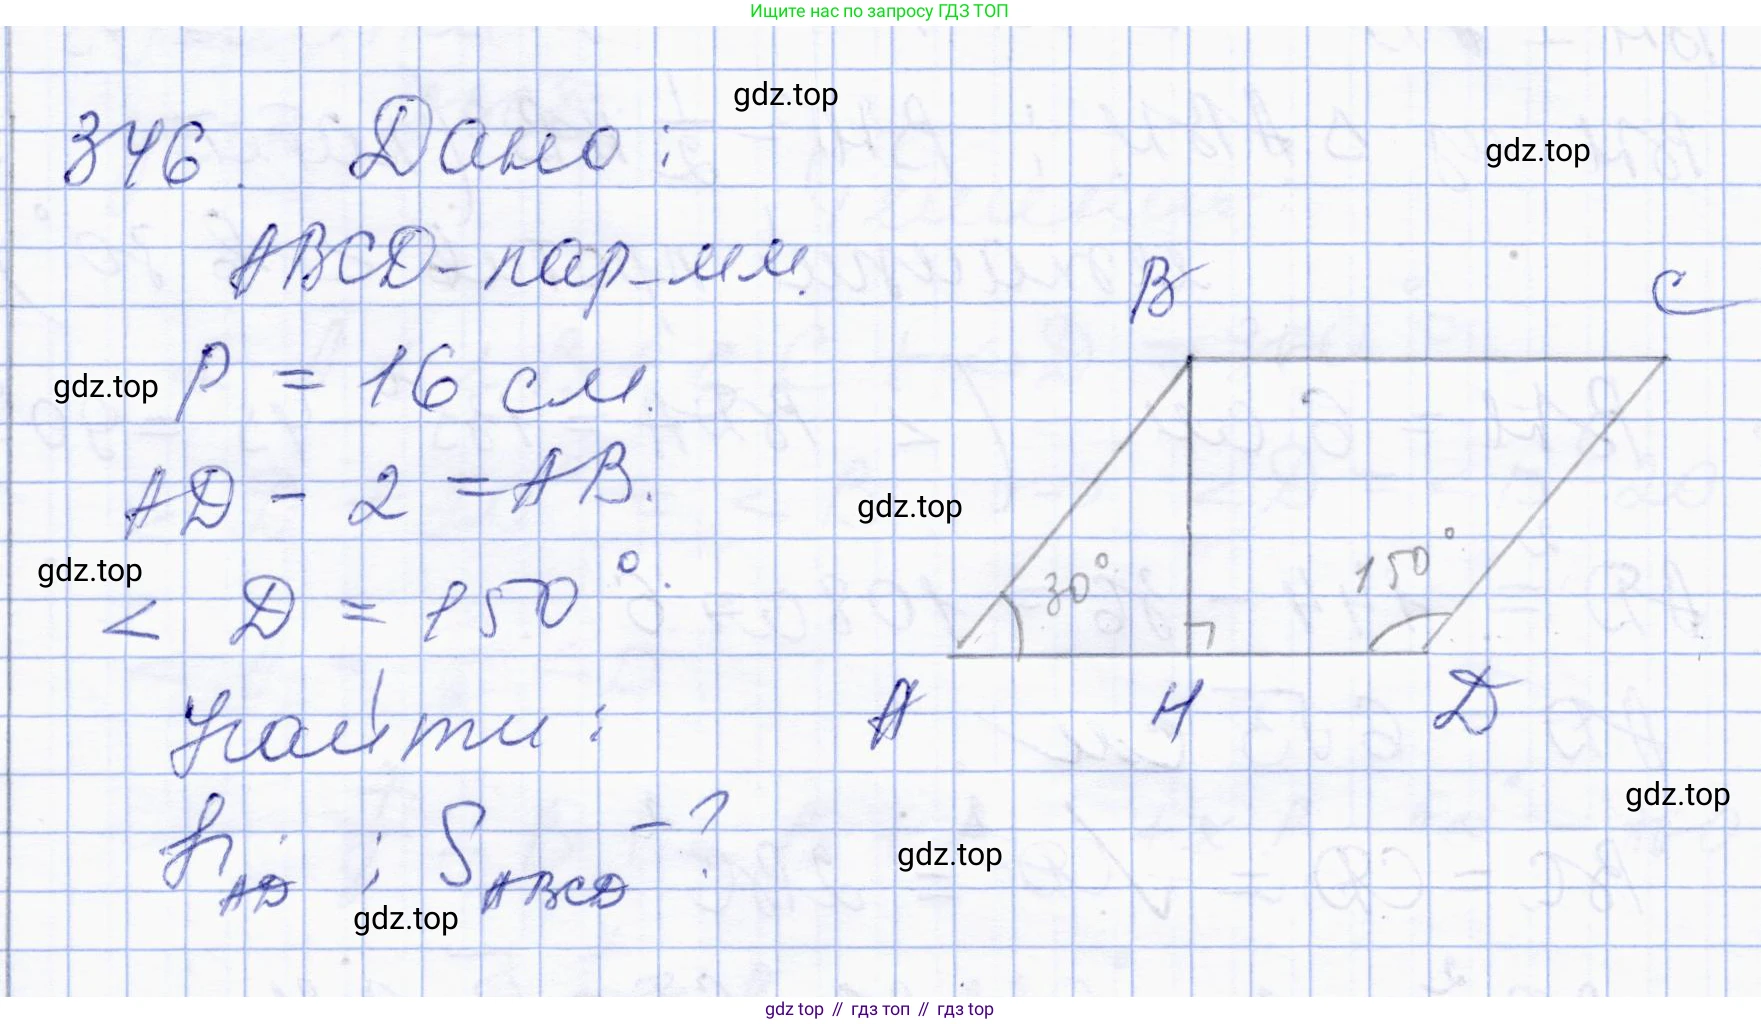 Ищите нас по запросу ГДЗ ТОП
gdz.top
346. Дано:
gdz.top
ABCD-пар-мм.
B
C
P = 16 см.
gdz.top
AD - 2 = AB.
gdz.top
30°
150°
gdz.top
< D = 150°.
A
H
D
Найти:
gdz.top
h AD ; S ABCD - ?
gdz.top
gdz.top
gdz top // гдз топ // гдз top